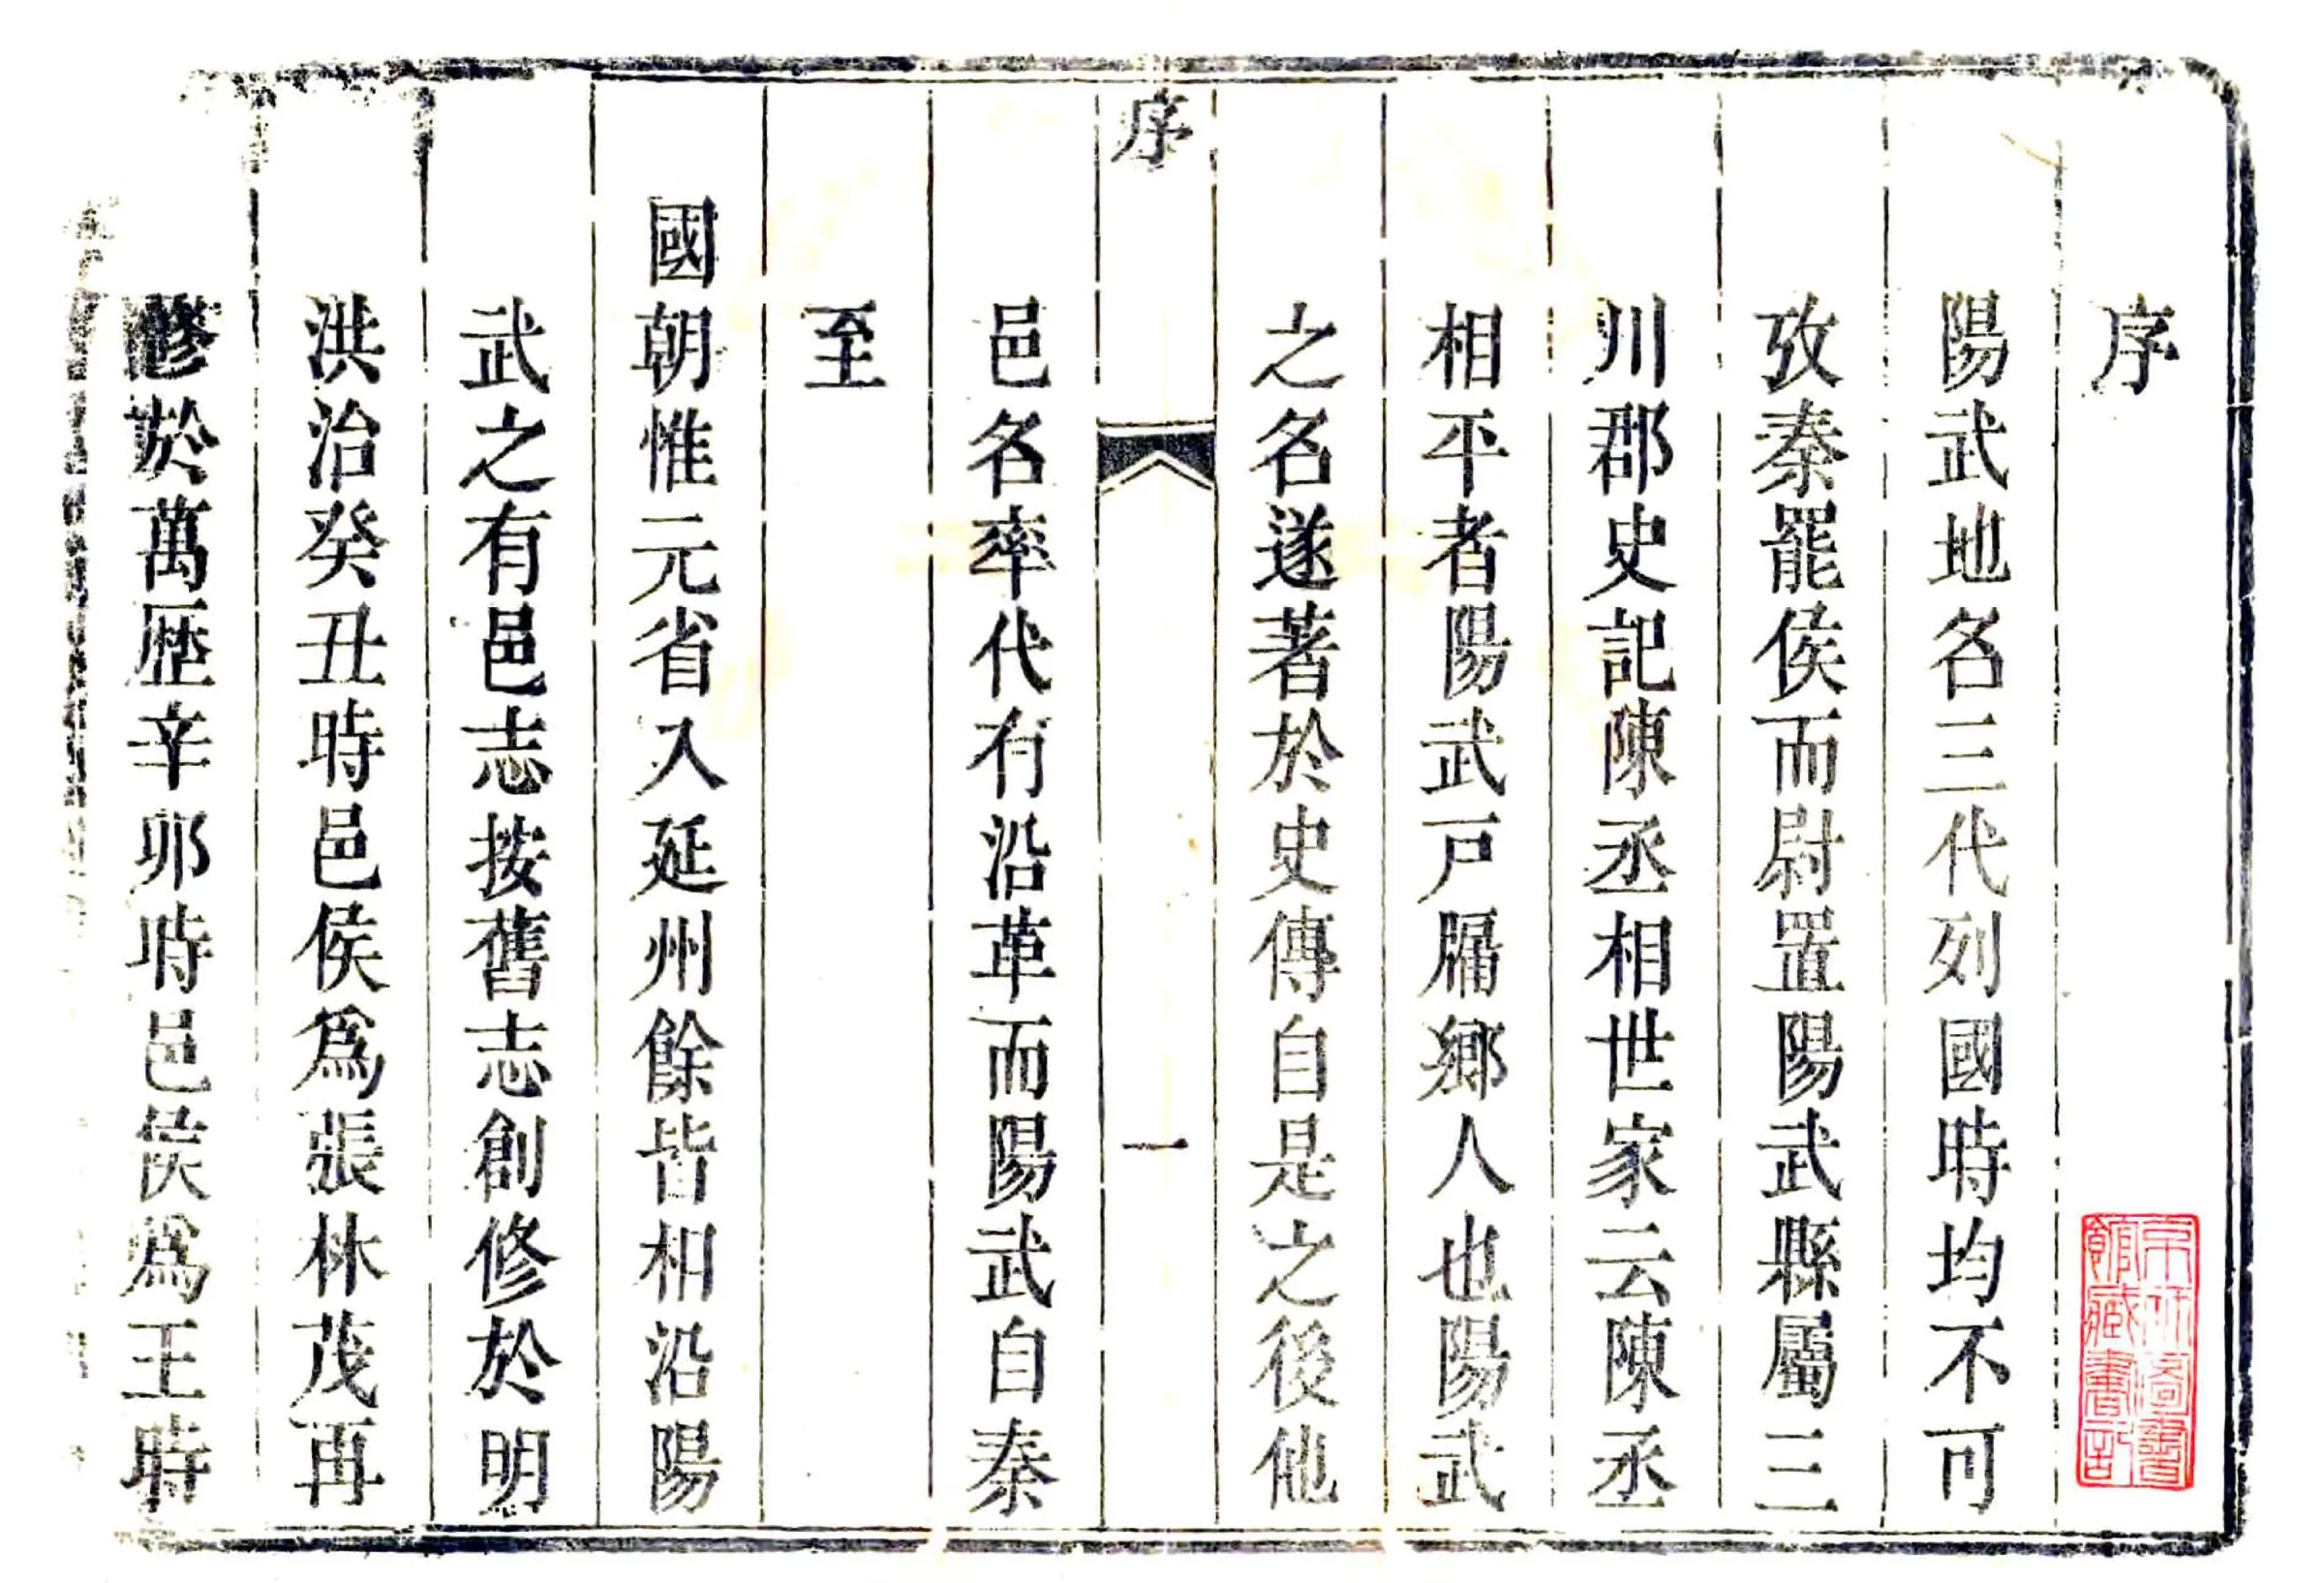 序
陽武地名三代列國時均不可
攷秦罷侯而尉置陽武縣屬三
川郡史記陳丞相世家云陳丞
相平者陽武戸牖鄉人也陽武
之名遂著於史傳自是之後他
序
一
邑名率代有沿革而陽武自秦
至
國朝惟元省入延州餘皆相沿陽
武之有邑志按舊志創修於明
洪治癸丑時邑侯爲張林茂再
修於萬歷辛卯時邑侯爲王時